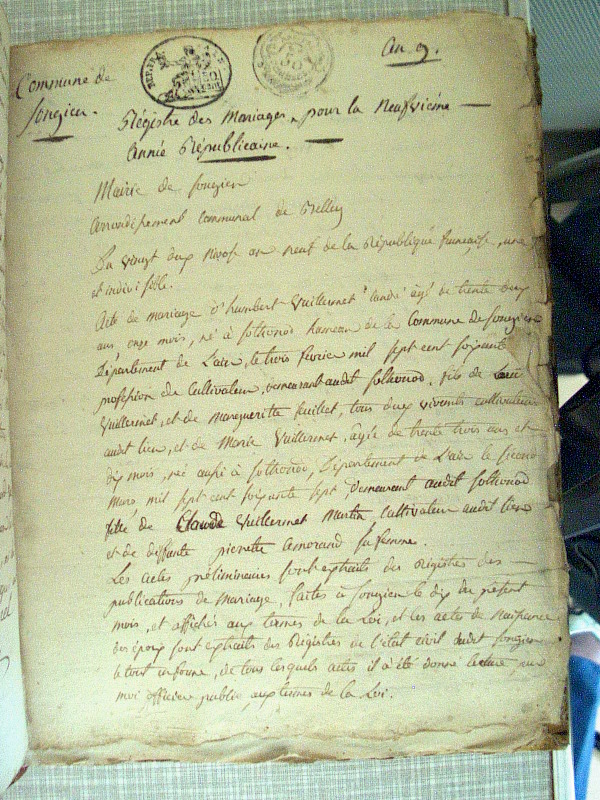 An 9.
Commune de
Songieu.
Régistre des Mariages, pour la Neufvième
Année Républicaine.
Mairie de Songieu
Arrondissement Communal de Belley
Du vingt deux Nivose an neuf de la République française, une
et indivisible.
Acte de mariage d'humbert Vuillermet âgé de trente deux
ans onze mois, né à Sothonod hameau de la Commune de Songieu
Département de L'ain, le trois fevrier mil sept cent soixante
profession de Cultivateur, demeurant audit Sothonod, fils de
Vuillermet, et de Marguerite feuillet, tous deux vivants cultivateurs
audit lieu, et de Marie Vuillermet, âgée de trente trois ans et
dix mois, née aussi à Sothonod, Département de L'ain le second
Mars mil sept cent soixante sept, demeurant audit Sothonod
fille de Claude Vuillermet Martin Cultivateur audit lieu
et de deffunte pierrette Amorand sa femme.
Les actes préliminaires sont extraits des Registres des
publications de Mariage, faites à Songieu le dix du présent
mois, et affichés aux termes de la Loi, et les actes de Naissance
des époux sont extraits des Registres de l'état civil dudit Songieu
le tout en forme, de tous lesquels actes il a été donné lecture par
moi officier public, aux termes de la Loi.